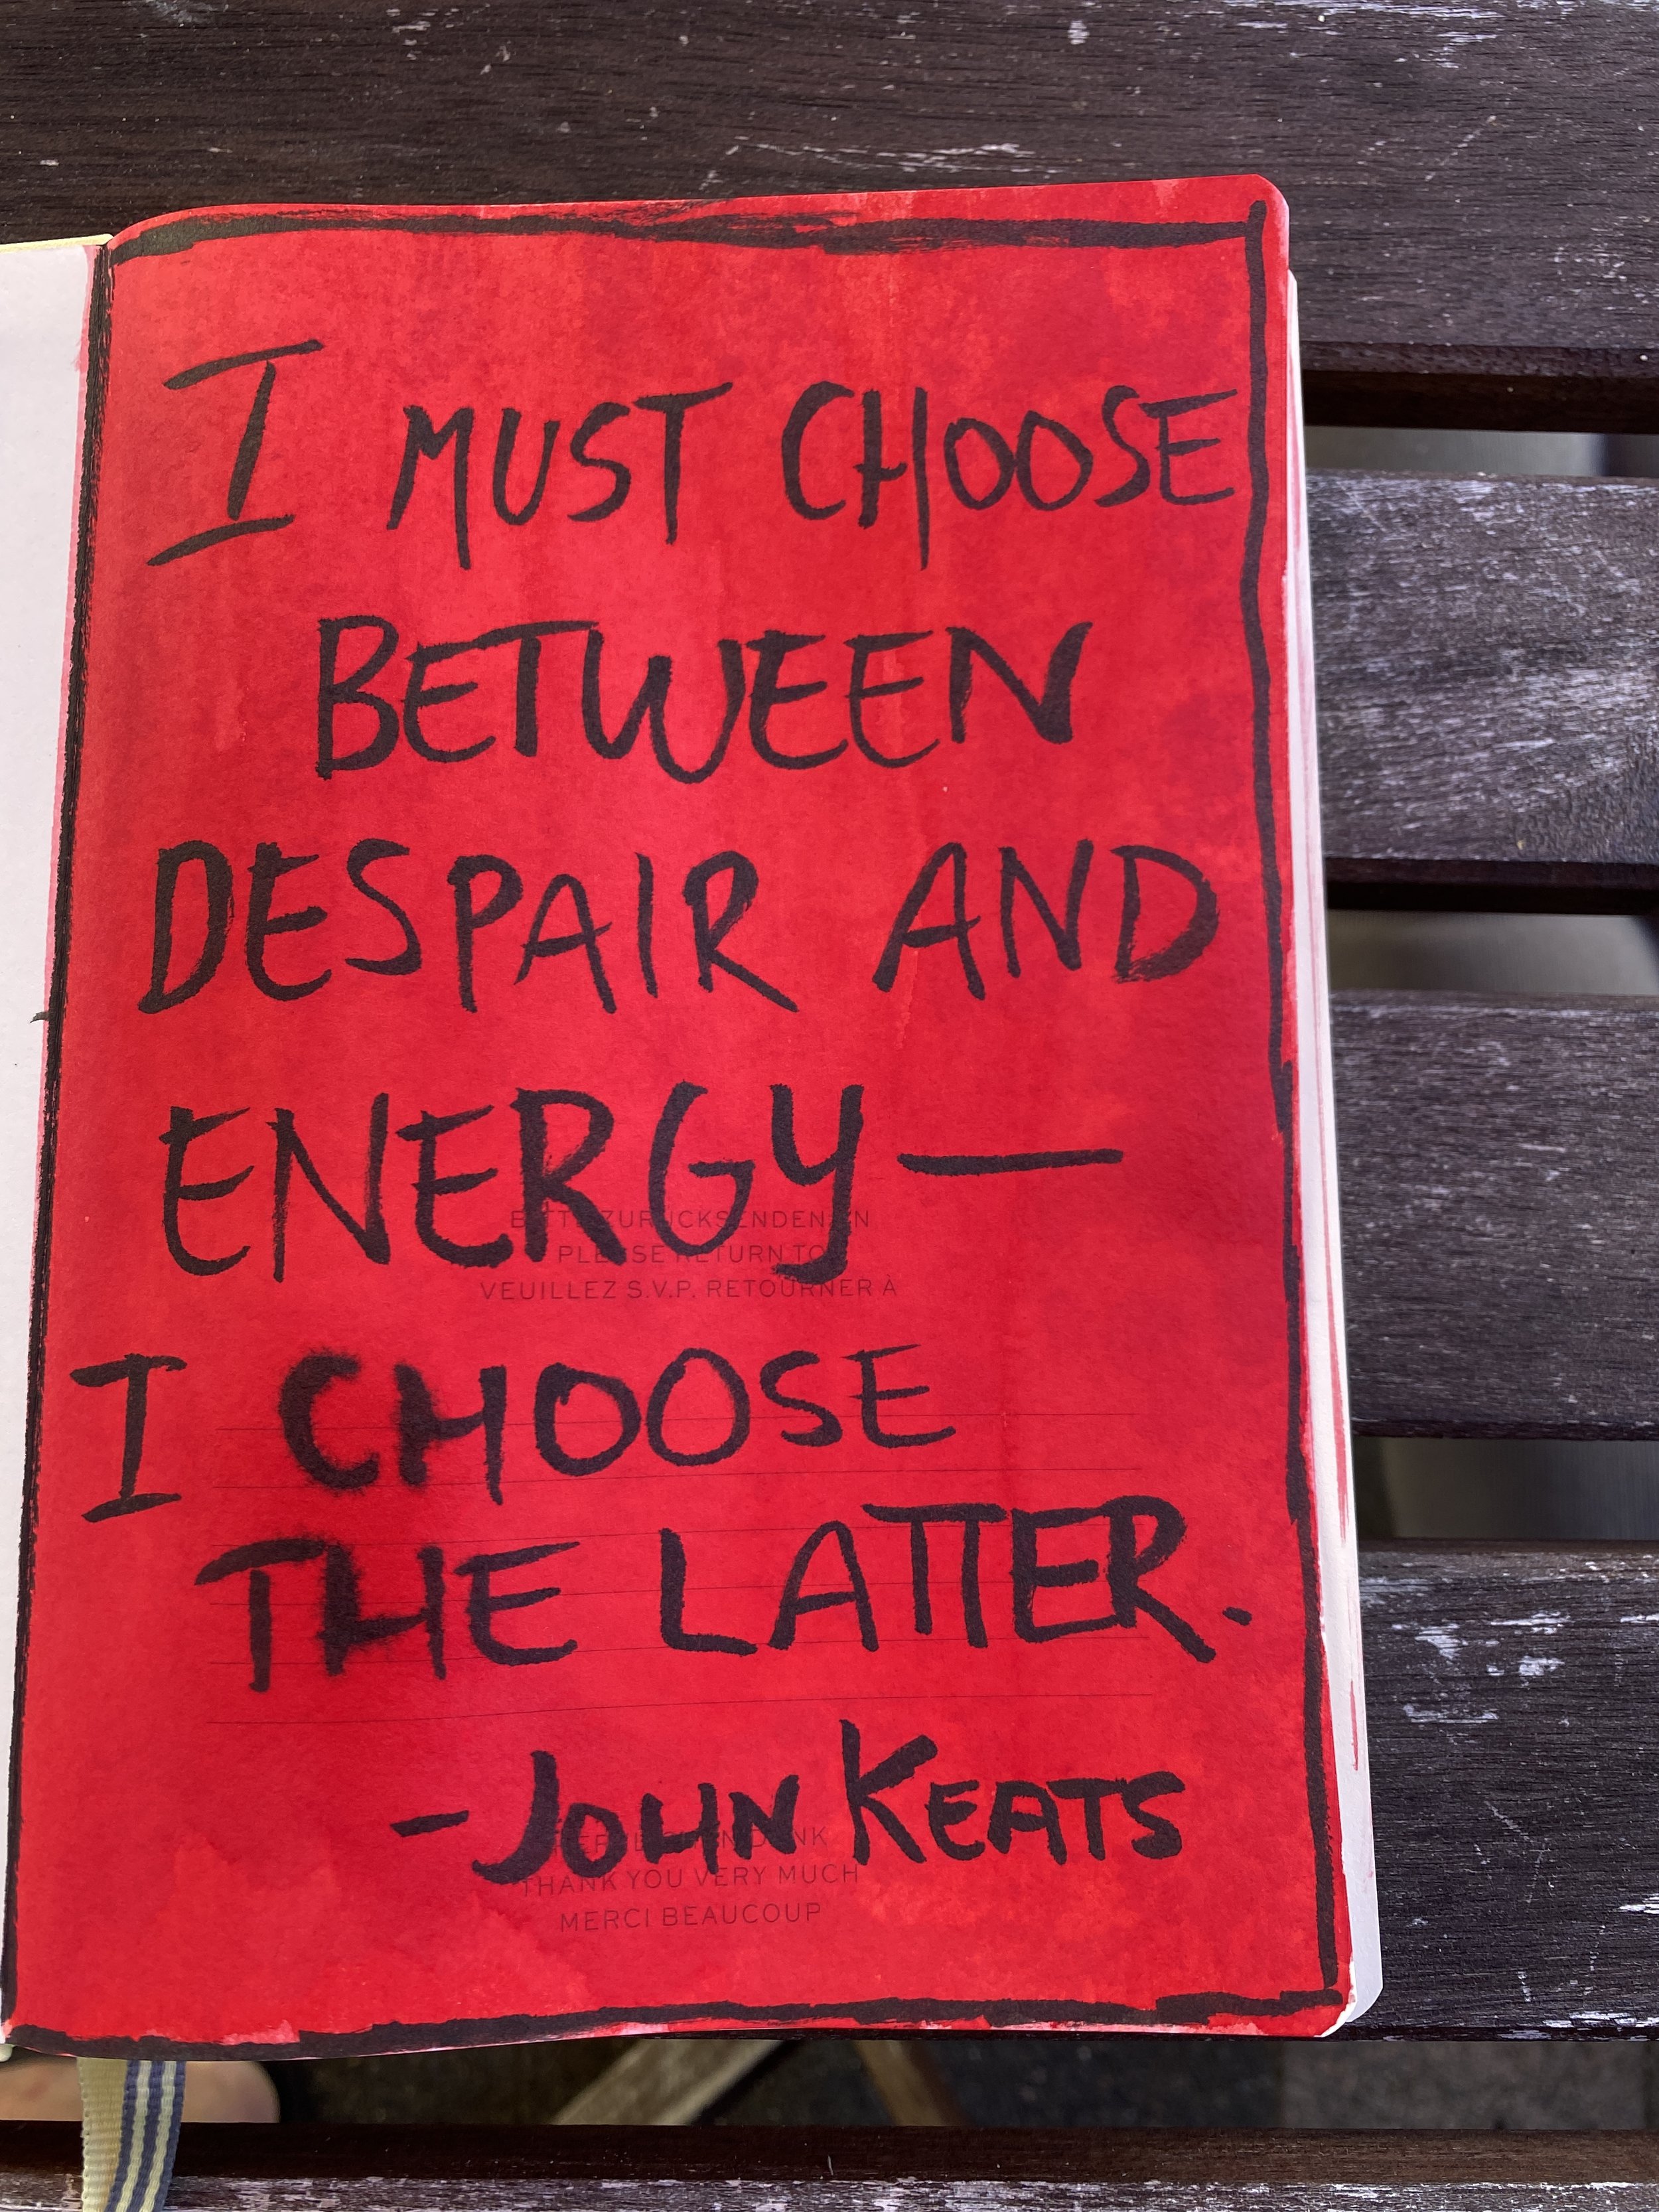 I MUST CHOOSE
BETWEEN
DESPAIR AND
ENERGY—
BITTE ZURÜCKSENDEN AN
PLEASE RETURN TO
VEUILLEZ S.V.P. RETOURNER À
I CHOOSE
THE LATTER.
-JOHN KEATS
DANK
THANK YOU VERY MUCH
MERCI BEAUCOUP